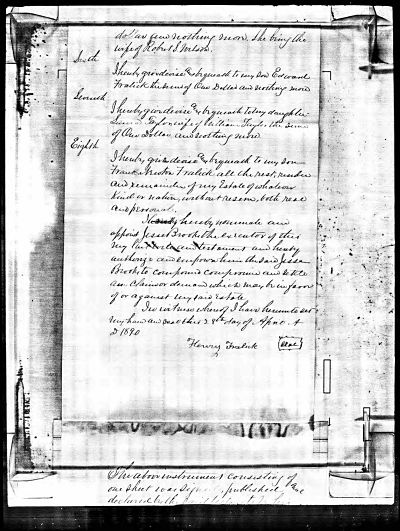 dollar and nothing more. She being the
wife of Robert S Wilson.
Sixth
I hereby give devise & bequeath to my Son Edward
Fralick the sum of One Dollar and nothing more
Seventh
I hereby give devise & bequeath to my daughter
Taylor wife of William Taylor the Sum
of One Dollar and nothing more
Eighth
I hereby give devise & bequeath to my Son
Frank Fralick all the rest, residue
and remainder of my Estate of whatever
kind or nature, without reserve, both real
and personal.
I hereby nominate and
appoint Jesse Brooks the executor of this
my last will and testament and hereby
authorize and empower him the said Jesse
Brooks to compound compromise and settle
any claim or demand which may be in favor
of or against my said Estate
In witness whereof I have hereunto set
my hand and seal this 28th day of April A
D 1890
Henry Fralick Seal
The above instrument consisting of
one sheet was signed published and
declared